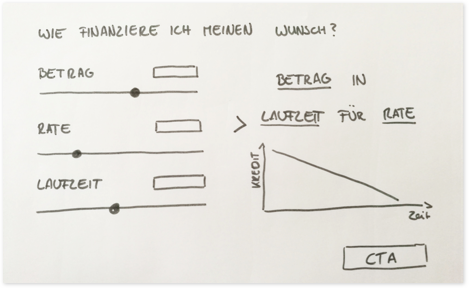 WIE FINANZIERE ICH MEINEN WUNSCH?
BETRAG
RATE
LAUFZEIT
>
BETRAG IN
LAUFZEIT FÜR RATE
KREDIT
Zeit
CTA